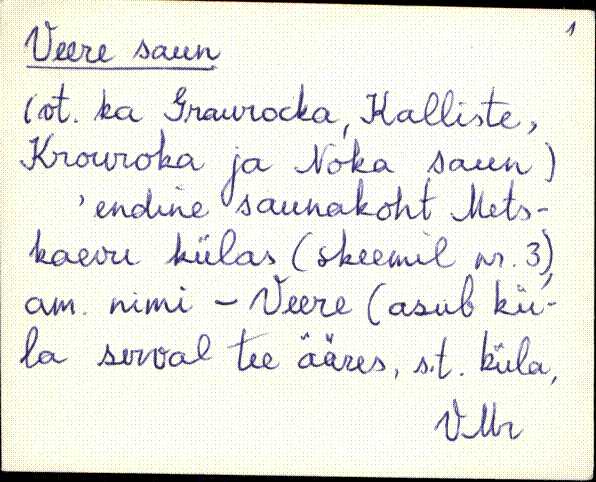 1
Veere saun
(vt. ka Graurocka, Kalliste,
Krouroka ja Noka saun)
'endine saunakoht Mets-
kaevu külas (skeemil nr. 3)
am. nimi - Veere (asub kü-
la serval tee ääres, s.t. küla,
VMr